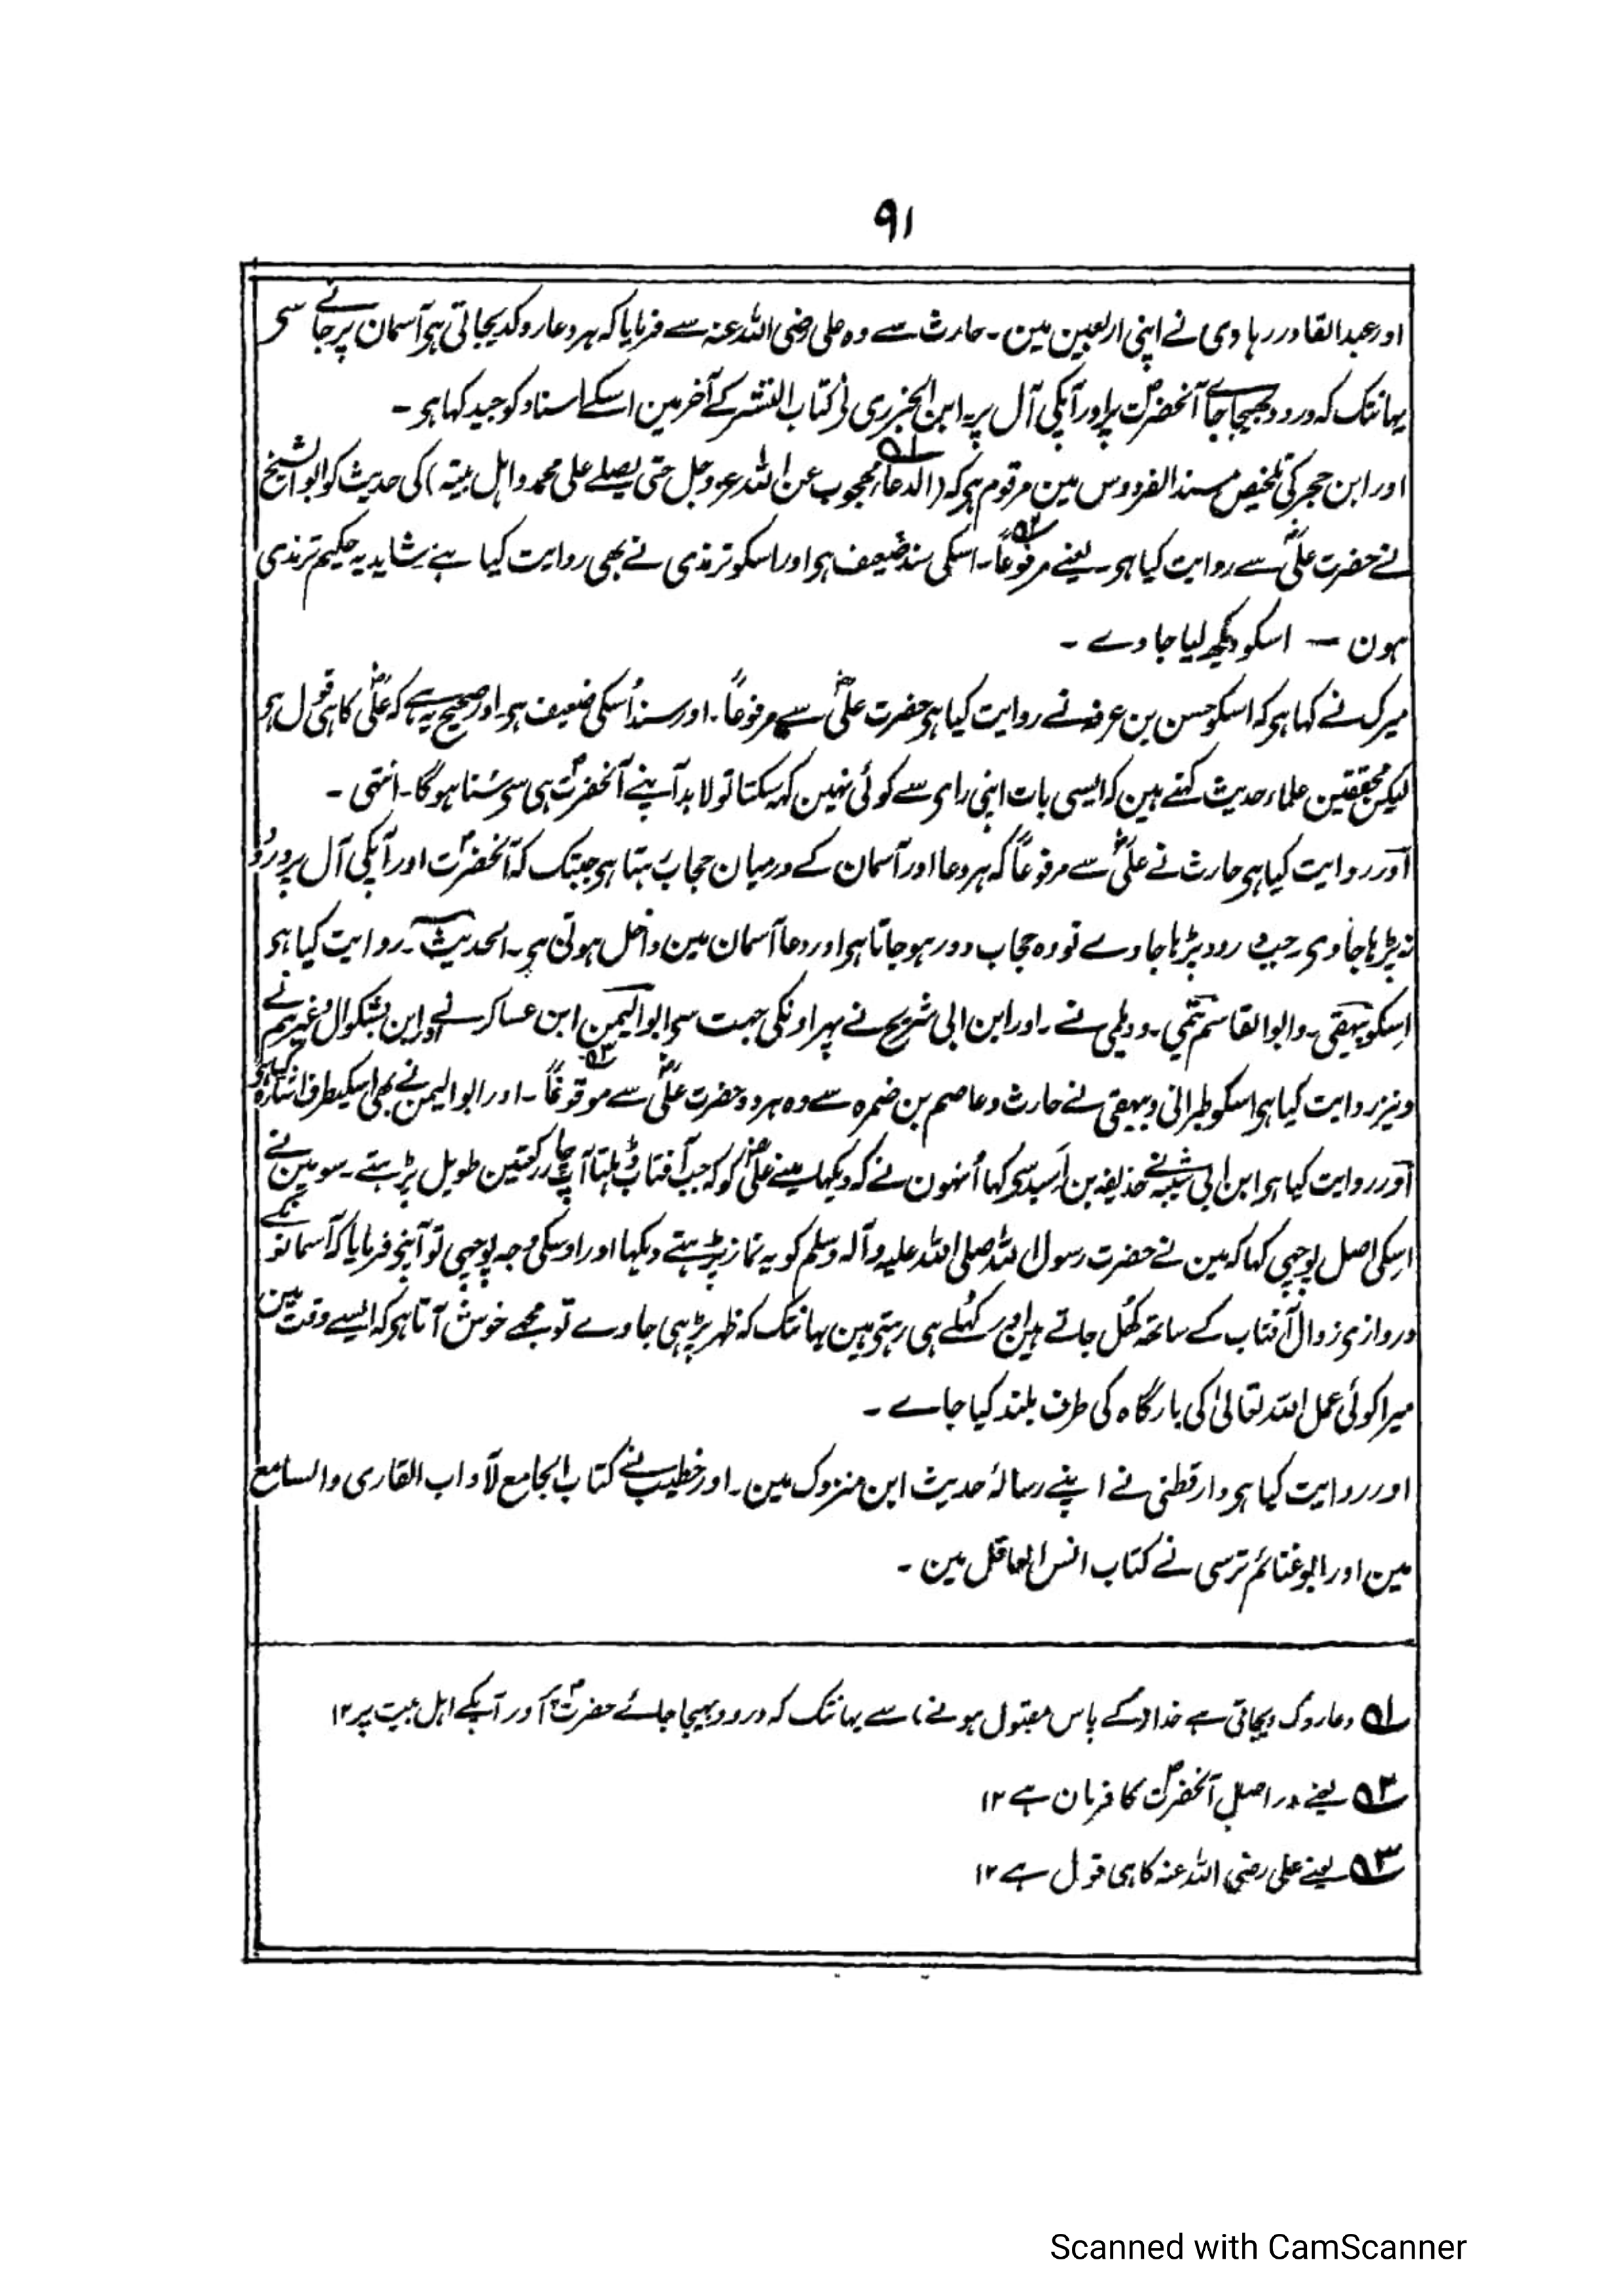 ۹۱
اور عبدالقادر رہاوی نے اپنی اربعین مین ۔ حارث سے وہ علی رضی اللہ عنہ سے فرمایا کہ ہر دعا روکدیجاتی ہی آسمان پر جانے سی
یہانتک کہ درود بھیجا جاے آنحضرتؐ پر اور آپکی آل پر یہ ابن الجزری نے کتاب النشر کے آخر مین اسکے اسناد کو جید کہا ہی ۔
اور ابن حجر کی تلخیص مسند الفردوس مین مرقوم ہی کہ (الدعاء محجوب عن اللہ عزوجل حتی یصلے علی محمد واہل بیتہ) کی حدیث کو ابوالشیخ
نے حضرت علیؓ سے روایت کیا ہی ۔ یعنے مرفوعاً ۔ اسکی سند ضعیف ہی اور اسکو ترمذی نے بھی روایت کیا ہے شاید یہ حکیم ترمذی
ہون — اسکو دیکھ لیا جاوے ۔
میرک نے کہا ہی کہ اسکو حسن بن عرفہ نے روایت کیا ہی حضرت علیؓ سے مرفوعاً ۔ اور سند اُسکی ضعیف ہی ۔ اور صحیح یہ ہے کہ علیؓ کا ہی قول ہی
لیکن محققین علماء حدیث کہتے ہین کہ ایسی بات اپنی رای سے کوئی نہین کہہ سکتا تو لابد آپنے آنحضرتؐ ہی سی سُنا ہوگا ۔ انتہی ۔
اور روایت کیا ہی حارث نے علیؓ سے مرفوعاً کہ ہر دعا اور آسمان کے درمیان حجاب رہتا ہی جبتک کہ آنحضرتؐ اور آپکی آل پر درود
نہ پڑہا جاوی ۔ جب درود پڑہا جاوے تو وہ حجاب دور ہو جاتا ہی اور دعا آسمان مین داخل ہوتی ہی ۔ الحدیث ۔ روایت کیا ہی
اِسکو بیہقی ۔ وابوالقاسم تیمی ۔ ودیلمی نے ۔ اور ابن ابی شریح نے پہر اونکی جہت سی ابوالیمن ابن عساکر نے اور ابن بشکوال وغیرہم نے
ونیز روایت کیا ہی اسکو طبرانی وبیہقی نے حارث وعاصم بن ضمرہ سے وہ ہر دو حضرت علیؓ سے موقوفاً ۔ اور ابوالیمن نے بھی اسکیطرف اشارہ کیا ہی
اور روایت کیا ہی ابن ابی شیبہ نے حذیفہ بن اَسید سی کہا اُنہون نے کہ دیکہا مینے علیؓ کو کہ جب آفتاب ڈہلتا آپ چار رکعتین طویل پڑہتے ۔ سو مین نے
اِسکی اصل پوچہی کہا کہ مین نے حضرت رسول اللہ صلی اللہ علیہ وآلہ وسلم کو یہ نماز پڑہتے دیکہا اور اوسکی وجہ پوچہی تو آپنے فرمایا کہ آسمانوں کے
دروازی زوال آفتاب کے ساتھ کُھل جاتے ہین اور کُہلے ہی رہتی ہین یہانتک کہ ظہر پڑہی جاوے تو مجھے خوش آتا ہی کہ ایسے وقت مین
میرا کوئی عمل اللہ تعالیٰ کی بارگاہ کی طرف بلند کیا جاے ۔
اور روایت کیا ہی دارقطنی نے اپنے رسالۂ حدیث ابن مین ۔ اور خطیب نے کتاب الجامع لآداب القاری والسامع
مین اور ابو غنائم نرسی نے کتاب انس العاقل مین ۔
۱ دعا روک دیجاتی ہے خدا (کے پاس مقبول ہونے) سے یہانتک کہ درود بھیجا جائے حضرتؐ پر اور آپکے اہل بیت پر ۱۲
۲ یعنے دراصل آنحضرتؐ کا فرمان ہے ۱۲
۳ یعنے علی رضی اللہ عنہ کا ہی قول ہے ۱۲
Scanned with CamScanner